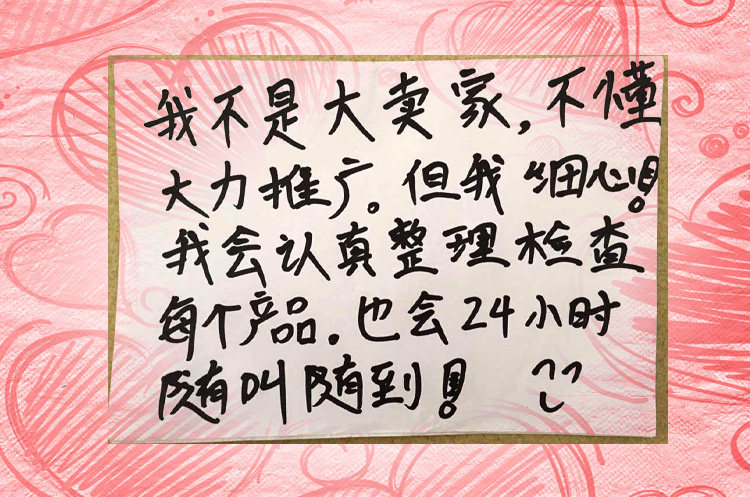 我不是大卖家,不懂
大力推广。但我细心!
我会认真整理检查
每个产品.也会24小时
随叫随到!